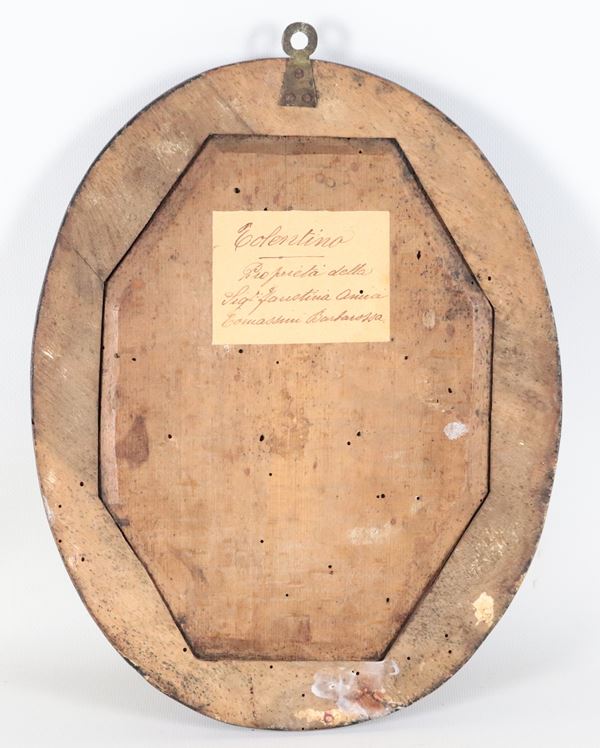 Tolentino
Proprietà della
Sigª Faustina Anna
Tomassini Barbarossa